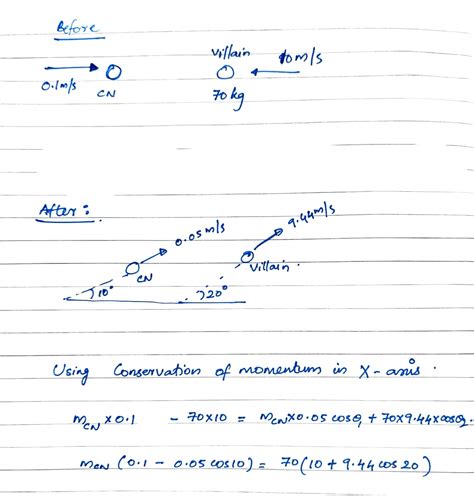 Before
Villain 10 m/s
0.1 m/s CN 70 kg
After :
0.05 m/s 9.44 m/s
CN Villain.
10° 20°
Using Conservation of momentum in X-axis.
m_CN × 0.1 - 70×10 = m_CN × 0.05 cosθ₁ + 70×9.44×cosθ₂.
m_CN (0.1 - 0.05 cos10) = 70(10 + 9.44 cos 20)